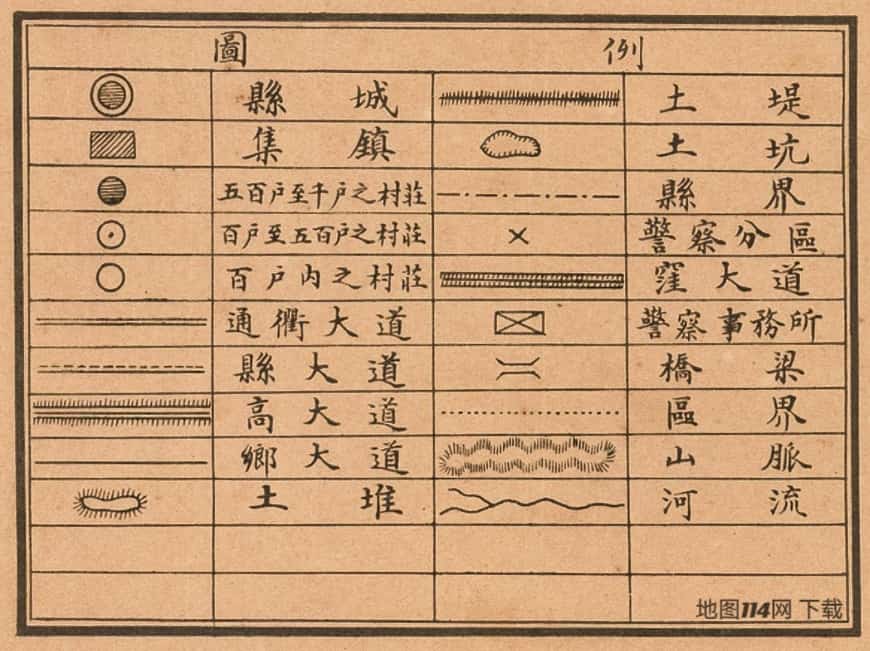 圖例
縣城 土堤
集鎮 土坑
五百戶至千戶之村莊 縣界
百戶至五百戶之村莊 警察分區
百戶內之村莊 窪大道
通衢大道 警察事務所
縣大道 橋梁
高大道 區界
鄉大道 山脈
土堆 河流
地图114网 下载